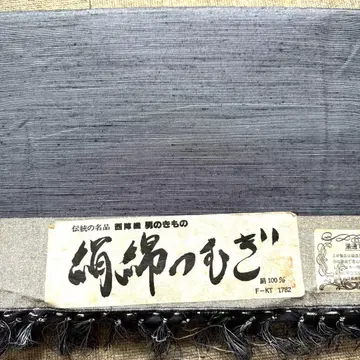 伝統の名品 西陣織 男のきもの
絹綿つむぎ
絹100%
F-KT 1782